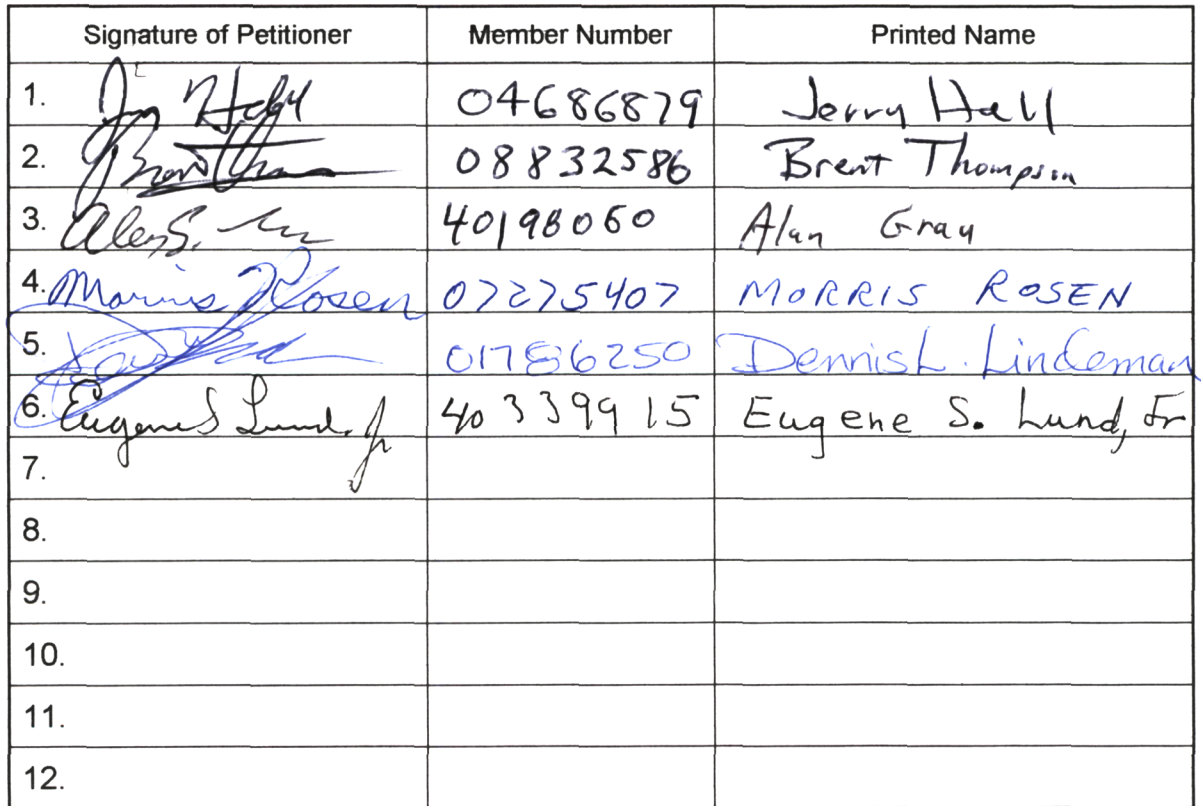 Signature of Petitioner Member Number Printed Name
1. 04686879 Jerry Hall
2. Brent 08832586 Brent Thompson
3. Alan S. 40198060 Alan Gray
4. Morris Rosen 07275407 MORRIS ROSEN
5. 01786250 Dennis L. Lindeman
6. Eugene S Lund. Jr 40339915 Eugene S. Lund, Jr
7.
8.
9.
10.
11.
12.